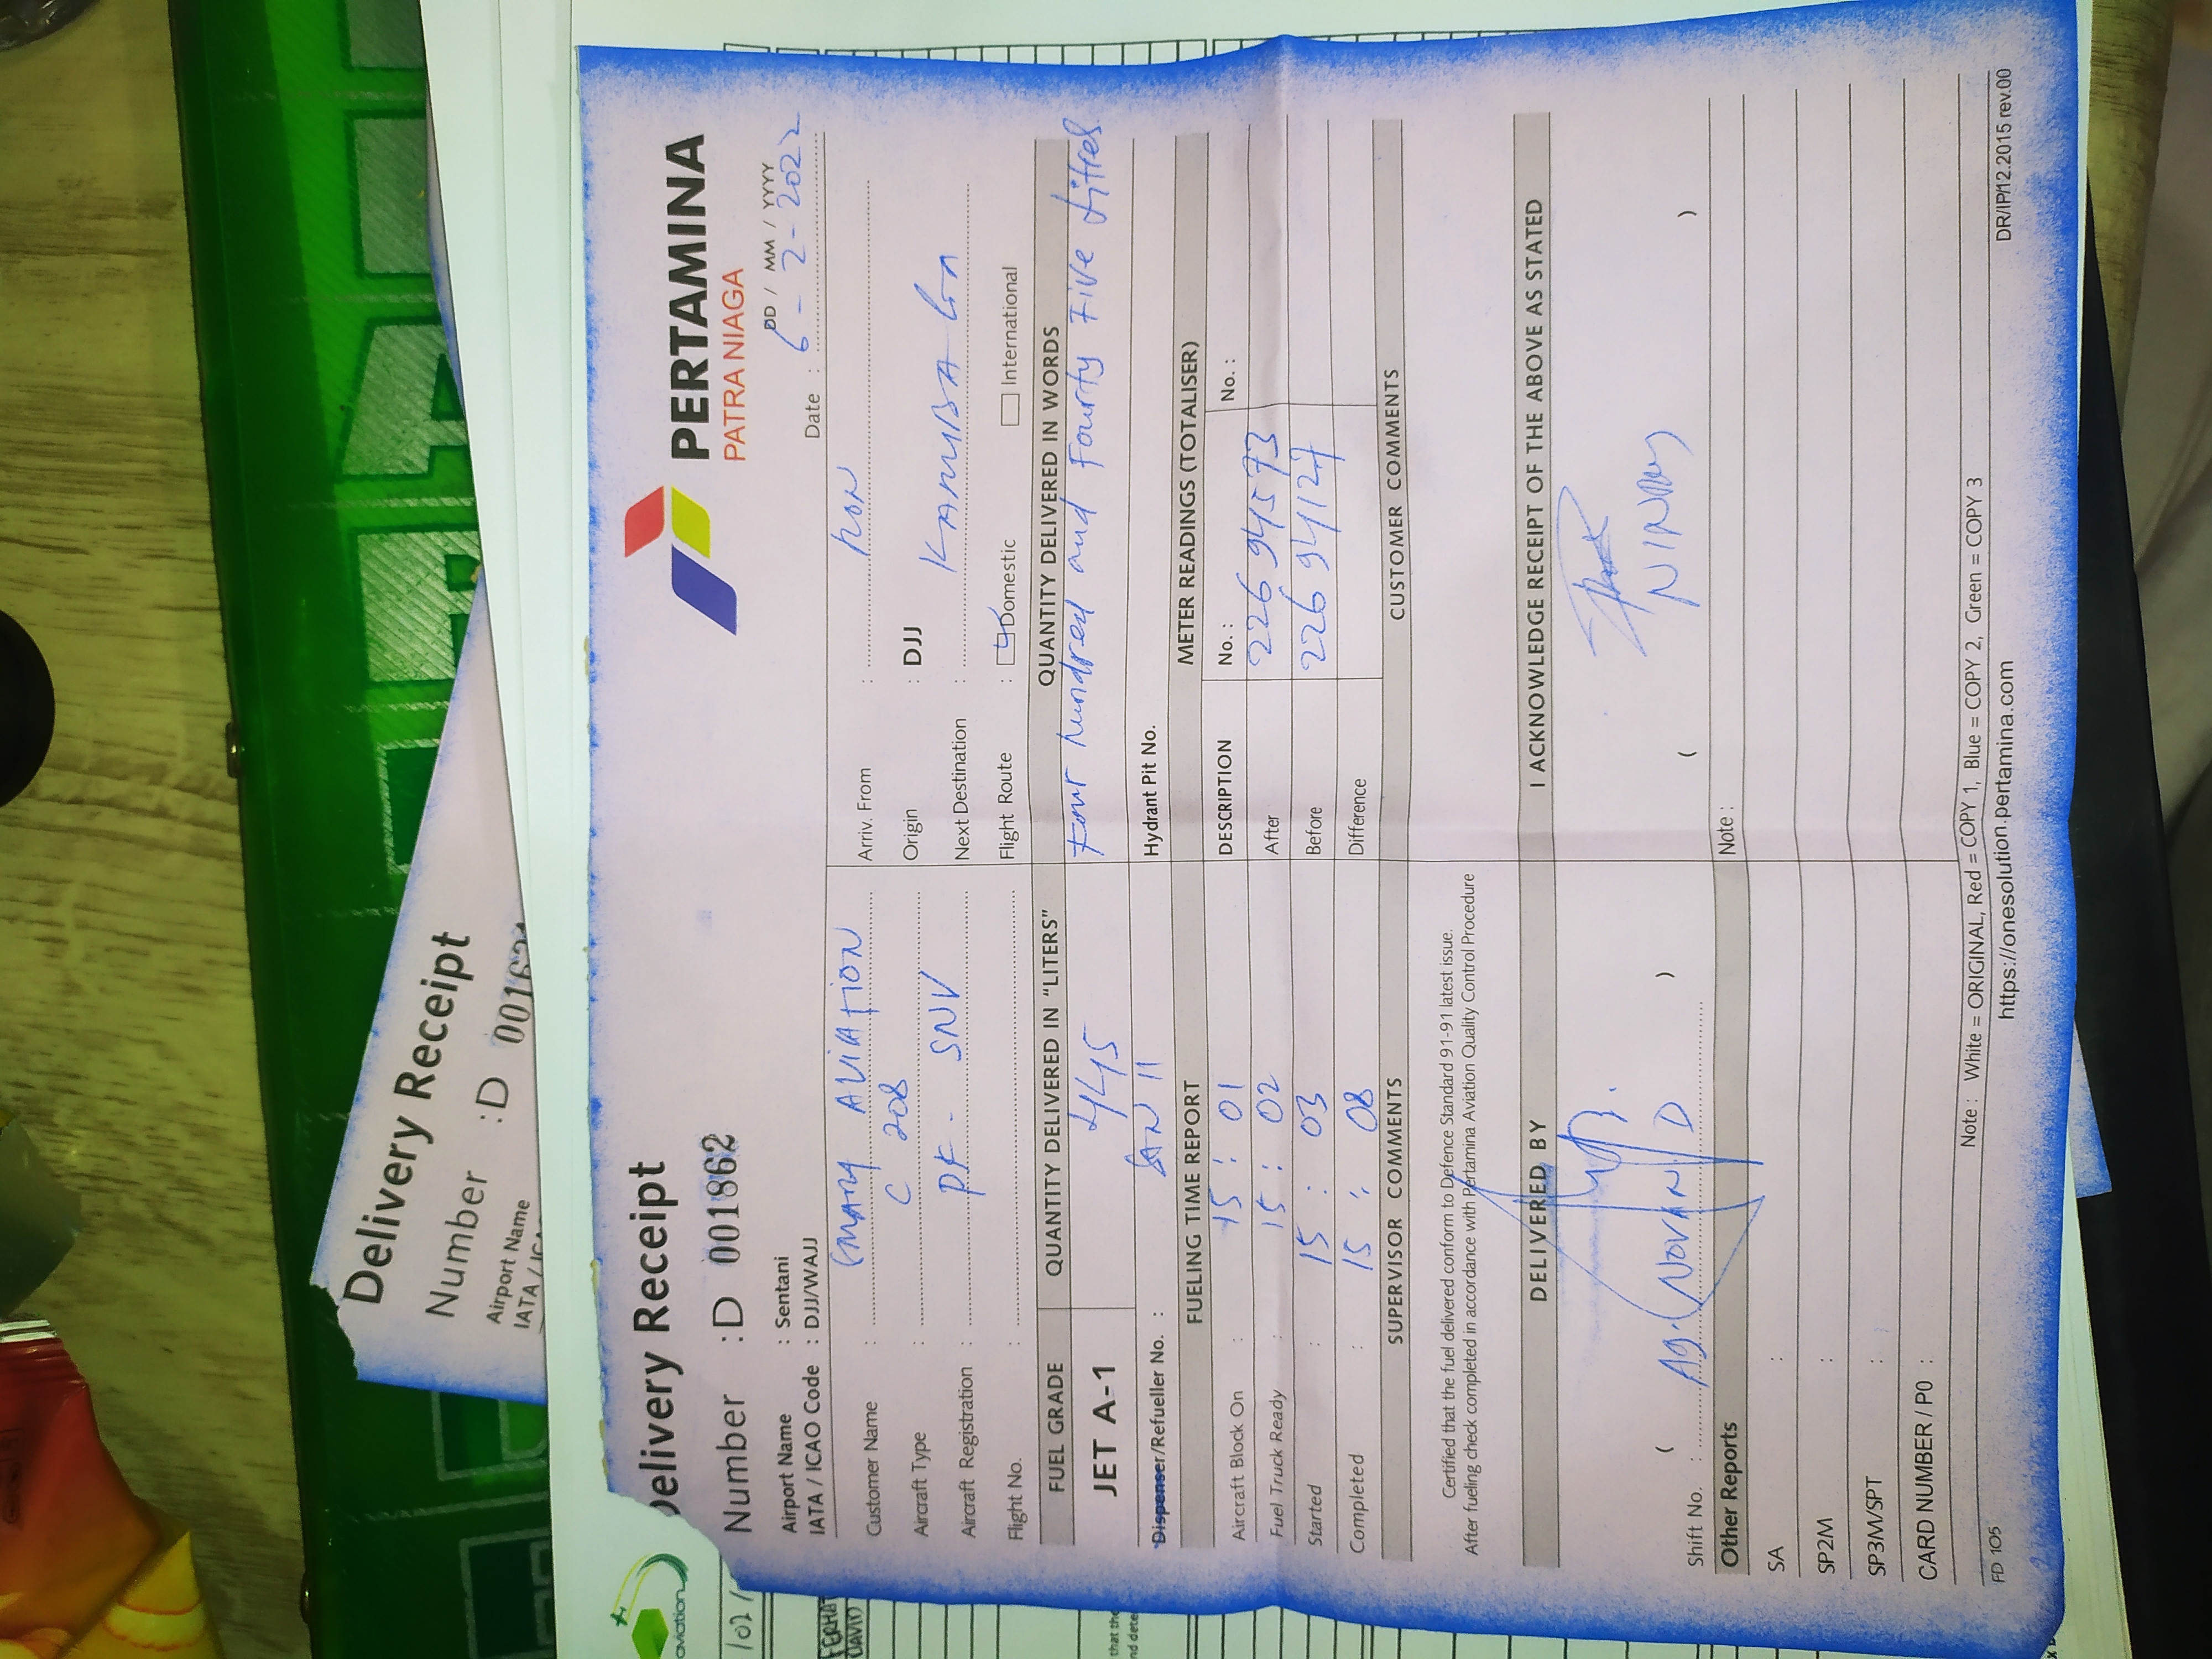 Delivery Receipt
Number : D 001862
PERTAMINA
PATRA NIAGA
DD / MM / YYYY
Airport Name : Sentani
IATA / ICAO Code : DJJ/WAJJ
Date : 6 - 2 - 2022
Customer Name : SMART AVIATION
Arriv. From :
Aircraft Type : C 208
Origin : DJJ
Aircraft Registration : PK - SNV
Next Destination :
Flight No. :
Flight Route : Domestic International
FUEL GRADE QUANTITY DELIVERED IN "LITERS" QUANTITY DELIVERED IN WORDS
JET A-1 445 Four hundred and Fourty Five Litres
Dispenser/Refueller No. : 11
Hydrant Pit No.
FUELING TIME REPORT METER READINGS (TOTALISER)
Aircraft Block On : 15 : 01
DESCRIPTION No. : No. :
Fuel Truck Ready : 15 : 02
After 226 94573
Started : 15 : 03
Before 226 94127
Completed : 15 : 08
Difference
SUPERVISOR COMMENTS CUSTOMER COMMENTS
Certified that the fuel delivered conform to Defence Standard 91-91 latest issue.
After fueling check completed in accordance with Pertamina Aviation Quality Control Procedure
DELIVERED BY I ACKNOWLEDGE RECEIPT OF THE ABOVE AS STATED
( )
( )
Shift No. :
Other Reports Note :
SA :
SP2M :
SP3M/SPT :
CARD NUMBER / P0 :
Note : White = ORIGINAL, Red = COPY 1, Blue = COPY 2, Green = COPY 3
FD 105
https://onesolution.pertamina.com
DR/IP/12.2015 rev.00
Delivery Receipt
Number : D
Airport Name
IATA /
aviation
that the